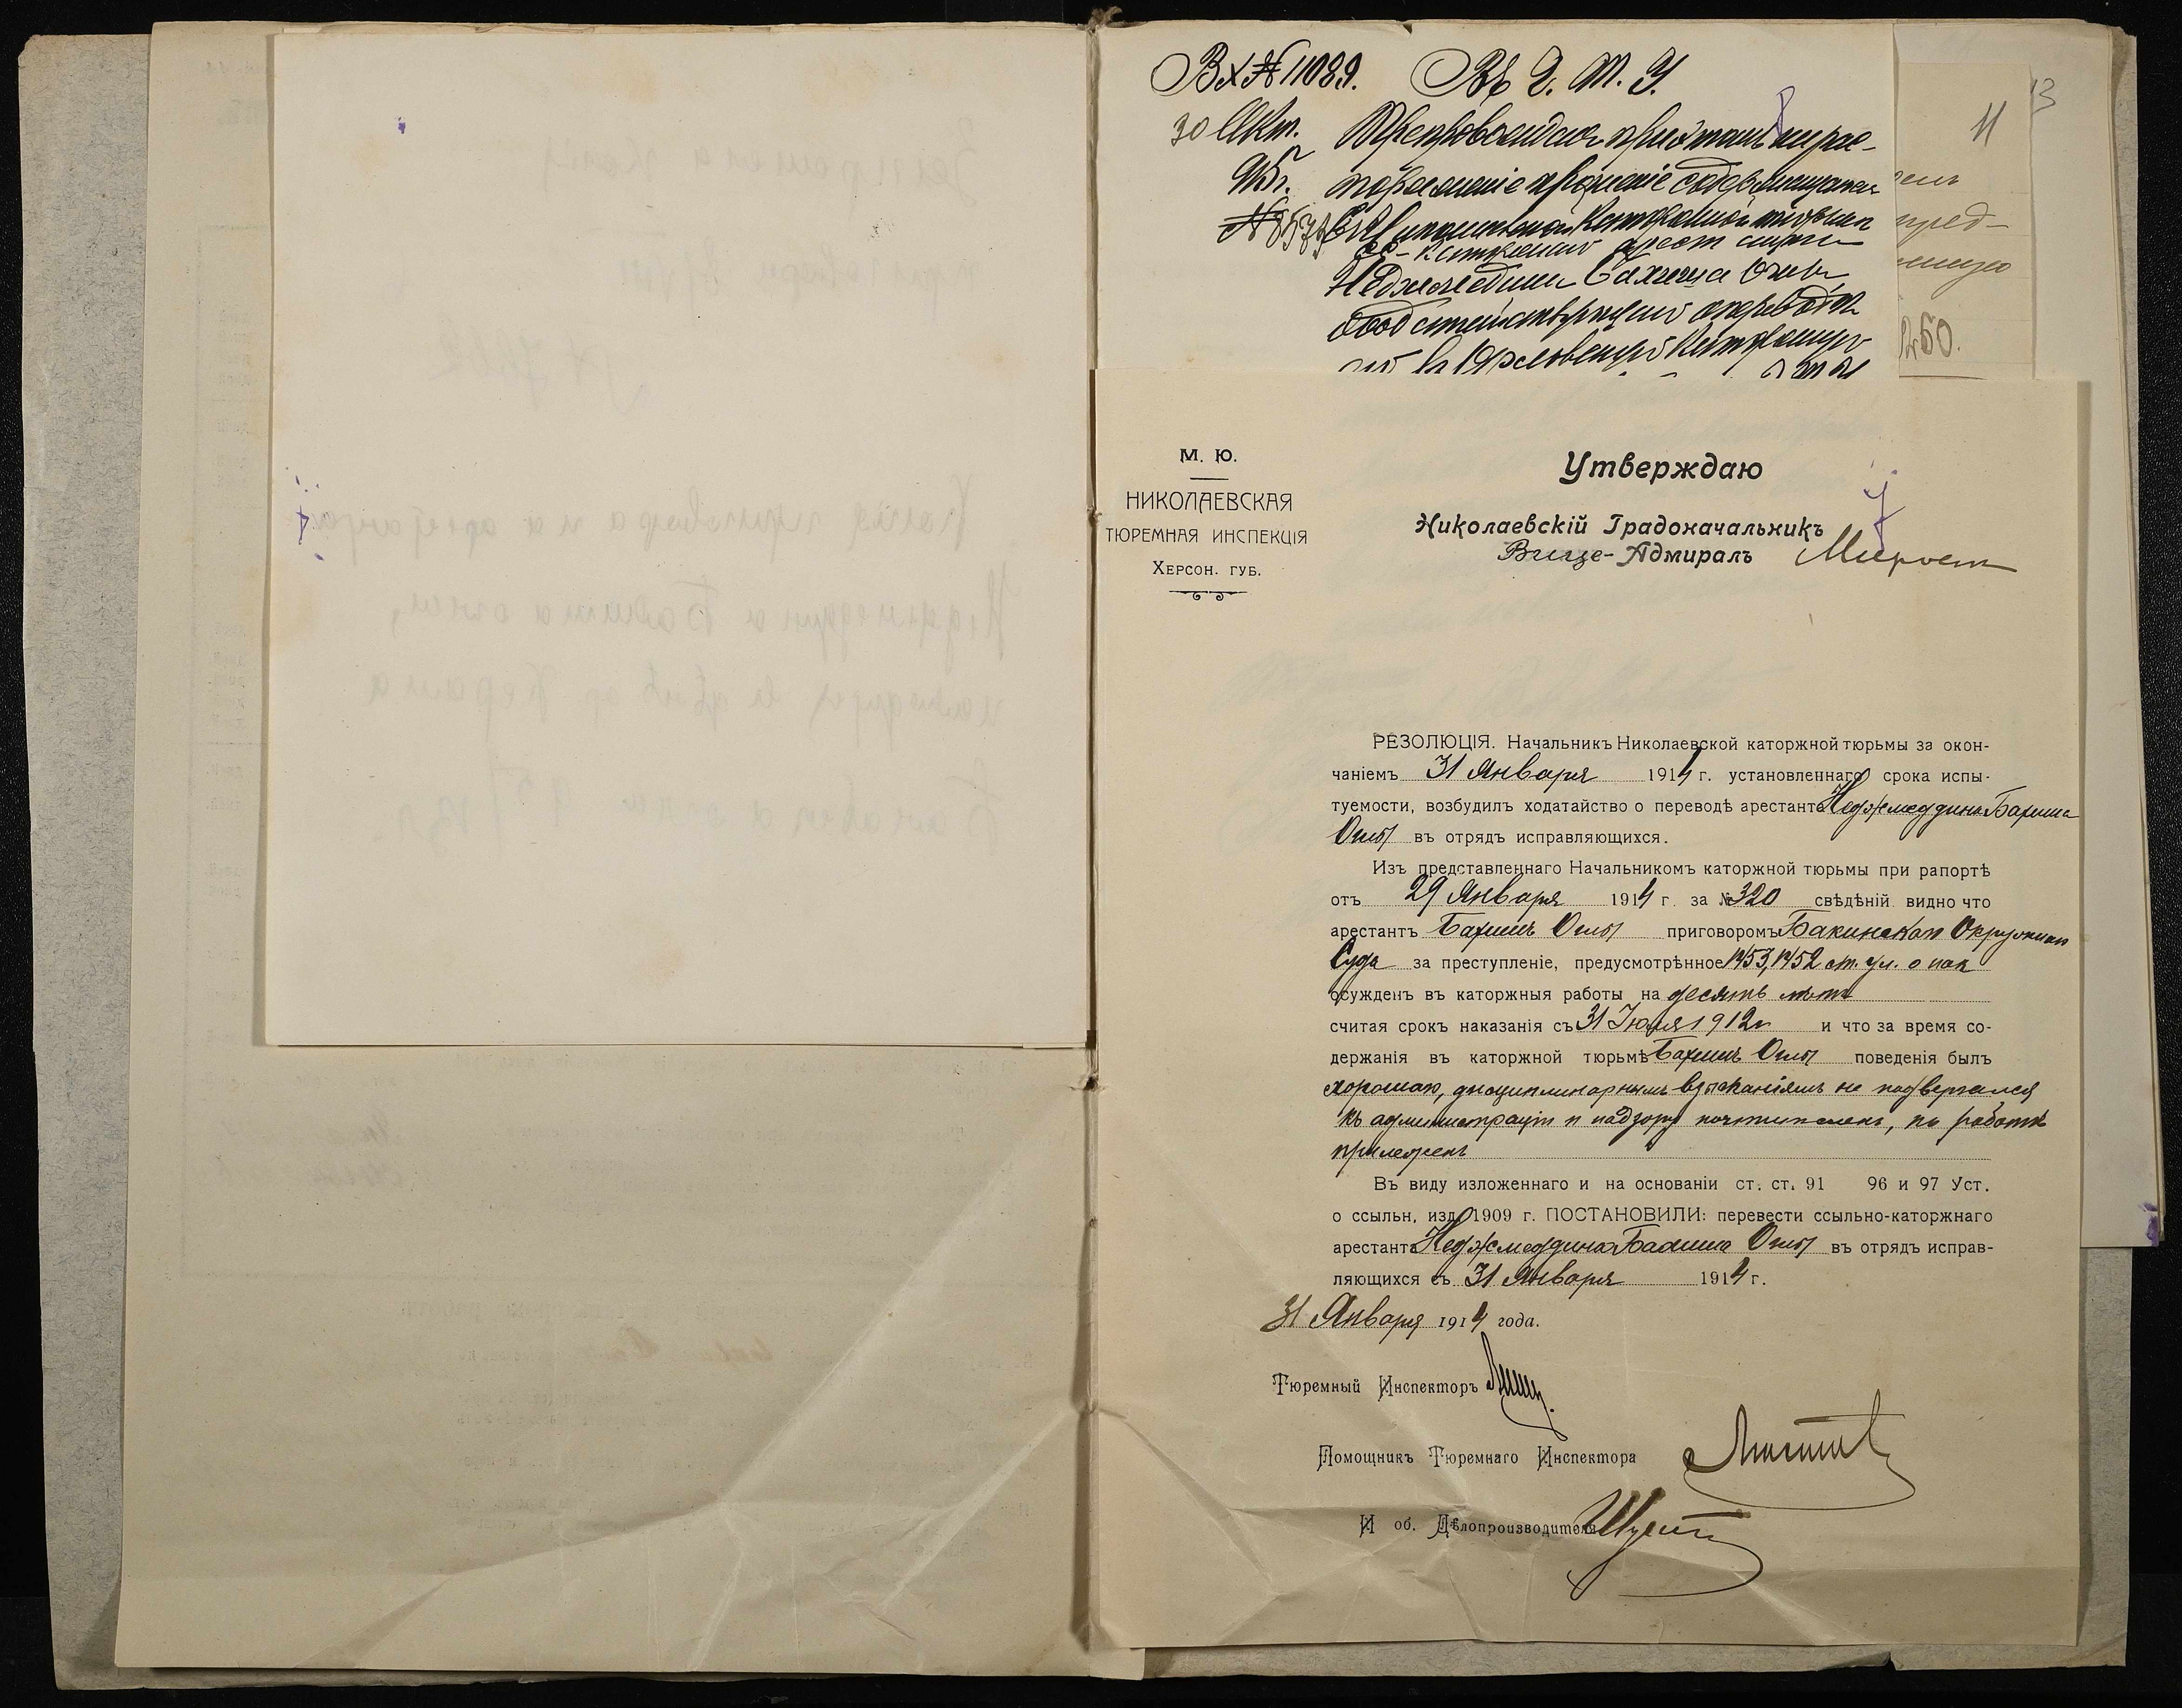 Вх № 11089. Въ Г. Т. У.
30 Окт. Препровождая при этомъ на рас-
915 г. поряженіе прошеніе содержащагося
въ Николаевской Каторжной тюрьмѣ
с.-каторжнаго арест
Неджмедина Бахиша Оглы,
о переводѣ
въ Каторжную
11
13
50.
М. Ю.
НИКОЛАЕВСКАЯ
ТЮРЕМНАЯ ИНСПЕКЦІЯ
ХЕРСОН. ГУБ.
Утверждаю
Николаевскій Градоначальникъ
Вице-Адмиралъ
РЕЗОЛЮЦІЯ. Начальникъ Николаевской каторжной тюрьмы за окон-
чаніемъ 31 Января 1914 г. установленнаго срока испы-
туемости, возбудилъ ходатайство о переводѣ арестанта Неджмеддина Бахиша
Оглы въ отрядъ исправляющихся.
Изъ представленнаго Начальникомъ каторжной тюрьмы при рапортѣ
отъ 29 Января 1914 г. за № 320 свѣдѣній видно что
арестантъ Бахишъ Оглы приговоромъ Бакинскаго Окружнаго
Суда за преступленіе, предусмотрѣнное 1453, 1452 ст. ул. о нак
осужденъ въ каторжныя работы на десять лѣтъ
считая срокъ наказанія съ 31 Іюля 1912 г и что за время со-
держанія въ каторжной тюрьмѣ Бахишъ Оглы поведенія былъ
хорошаго, дисциплинарнымъ взысканіямъ не подвергался
къ администраціи и надзору почтителенъ, къ работѣ
прилеженъ
Въ виду изложеннаго и на основаніи ст. ст. 91 96 и 97 Уст.
о ссыльн, изд 1909 г. ПОСТАНОВИЛИ: перевести ссыльно-каторжнаго
арестанта Неджмеддина Бахиша Оглы въ отрядъ исправ-
ляющихся съ 31 Января 1914 г.
31 Января 1914 года.
Тюремный Инспекторъ
Помощникъ Тюремнаго Инспектора
И об. Дѣлопроизводителя